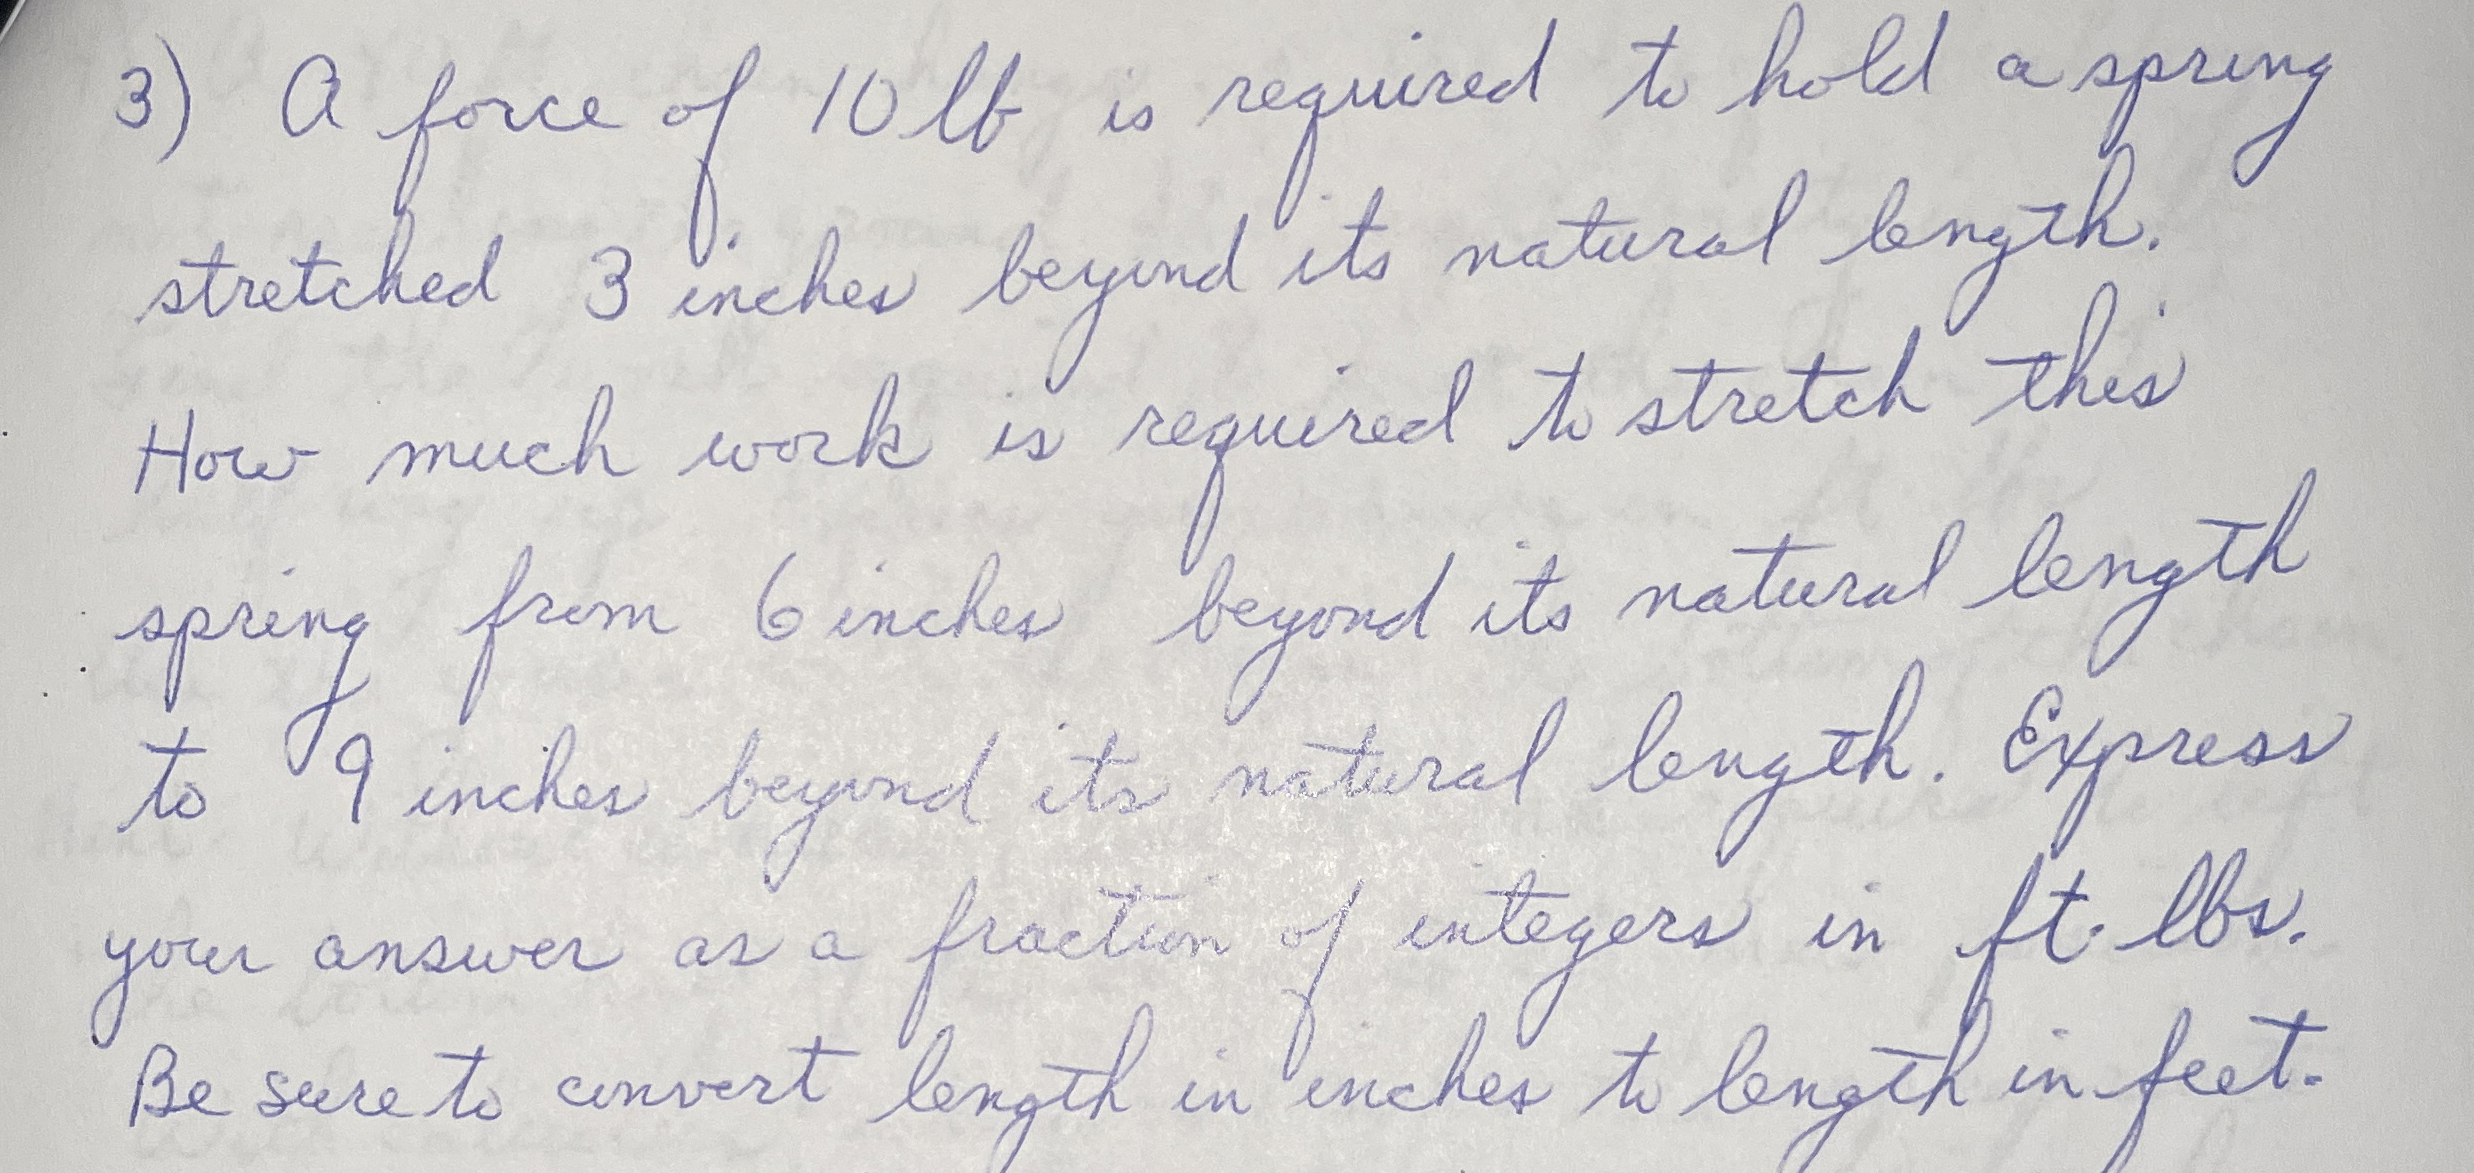 3) A force of 10 lb is required to hold a spring
stretched 3 inches beyond its natural length.
How much work is required to stretch this
spring from 6 inches beyond its natural length
to 9 inches beyond its natural length. Express
your answer as a fraction of integers in ft. lbs.
Be sure to convert length in inches to length in feet.